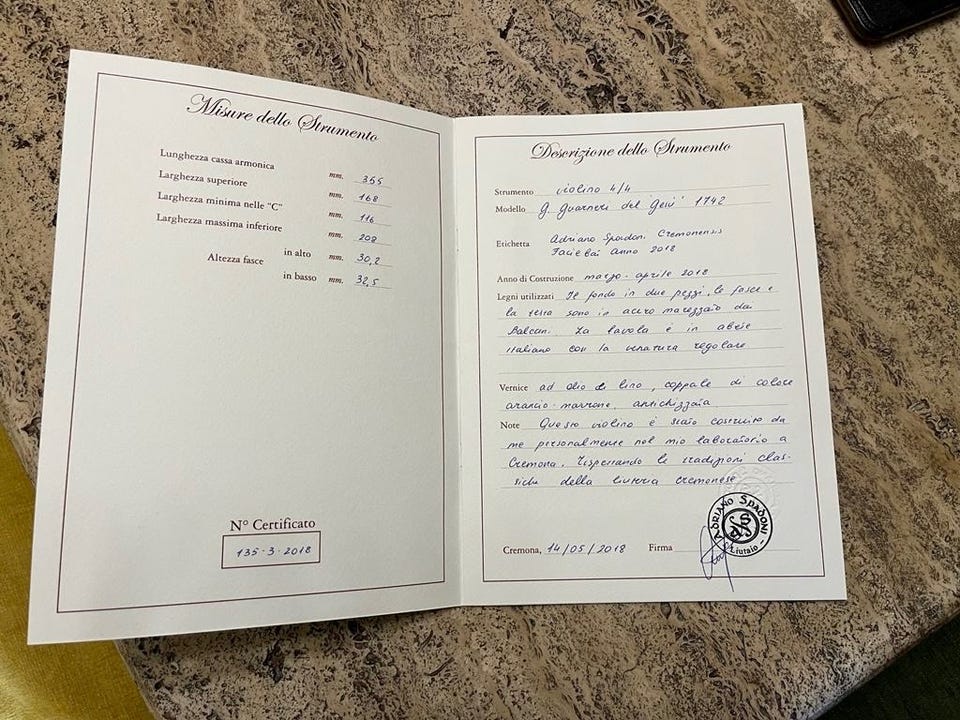 Misure dello Strumento
Lunghezza cassa armonica mm. 355
Larghezza superiore mm. 168
Larghezza minima nelle "C" mm. 116
Larghezza massima inferiore mm. 208
Altezza fasce in alto mm. 30,2
in basso mm. 32,5
N° Certificato
135-3-2018
Descrizione dello Strumento
Strumento violino 4/4
Modello G. Guarneri del Gesù 1742
Etichetta Adriano Spadoni Cremonensis
Faciebat anno 2018
Anno di Costruzione marzo-aprile 2018
Legni utilizzati Il fondo in due pezzi, le fasce e
la testa sono in acero marezzato dai
Balcan. La tavola è in abete
italiano con la venatura regolare
Vernice ad olio di lino, coppale di colore
arancio-marrone, antichizzata
Note Questo violino è stato costruito da
me personalmente nel mio laboratorio a
Cremona, rispettando le tradizioni clas-
siche della liuteria cremonese
ADRIANO SPADONI
Liutaio
Cremona, 14/05/2018 Firma